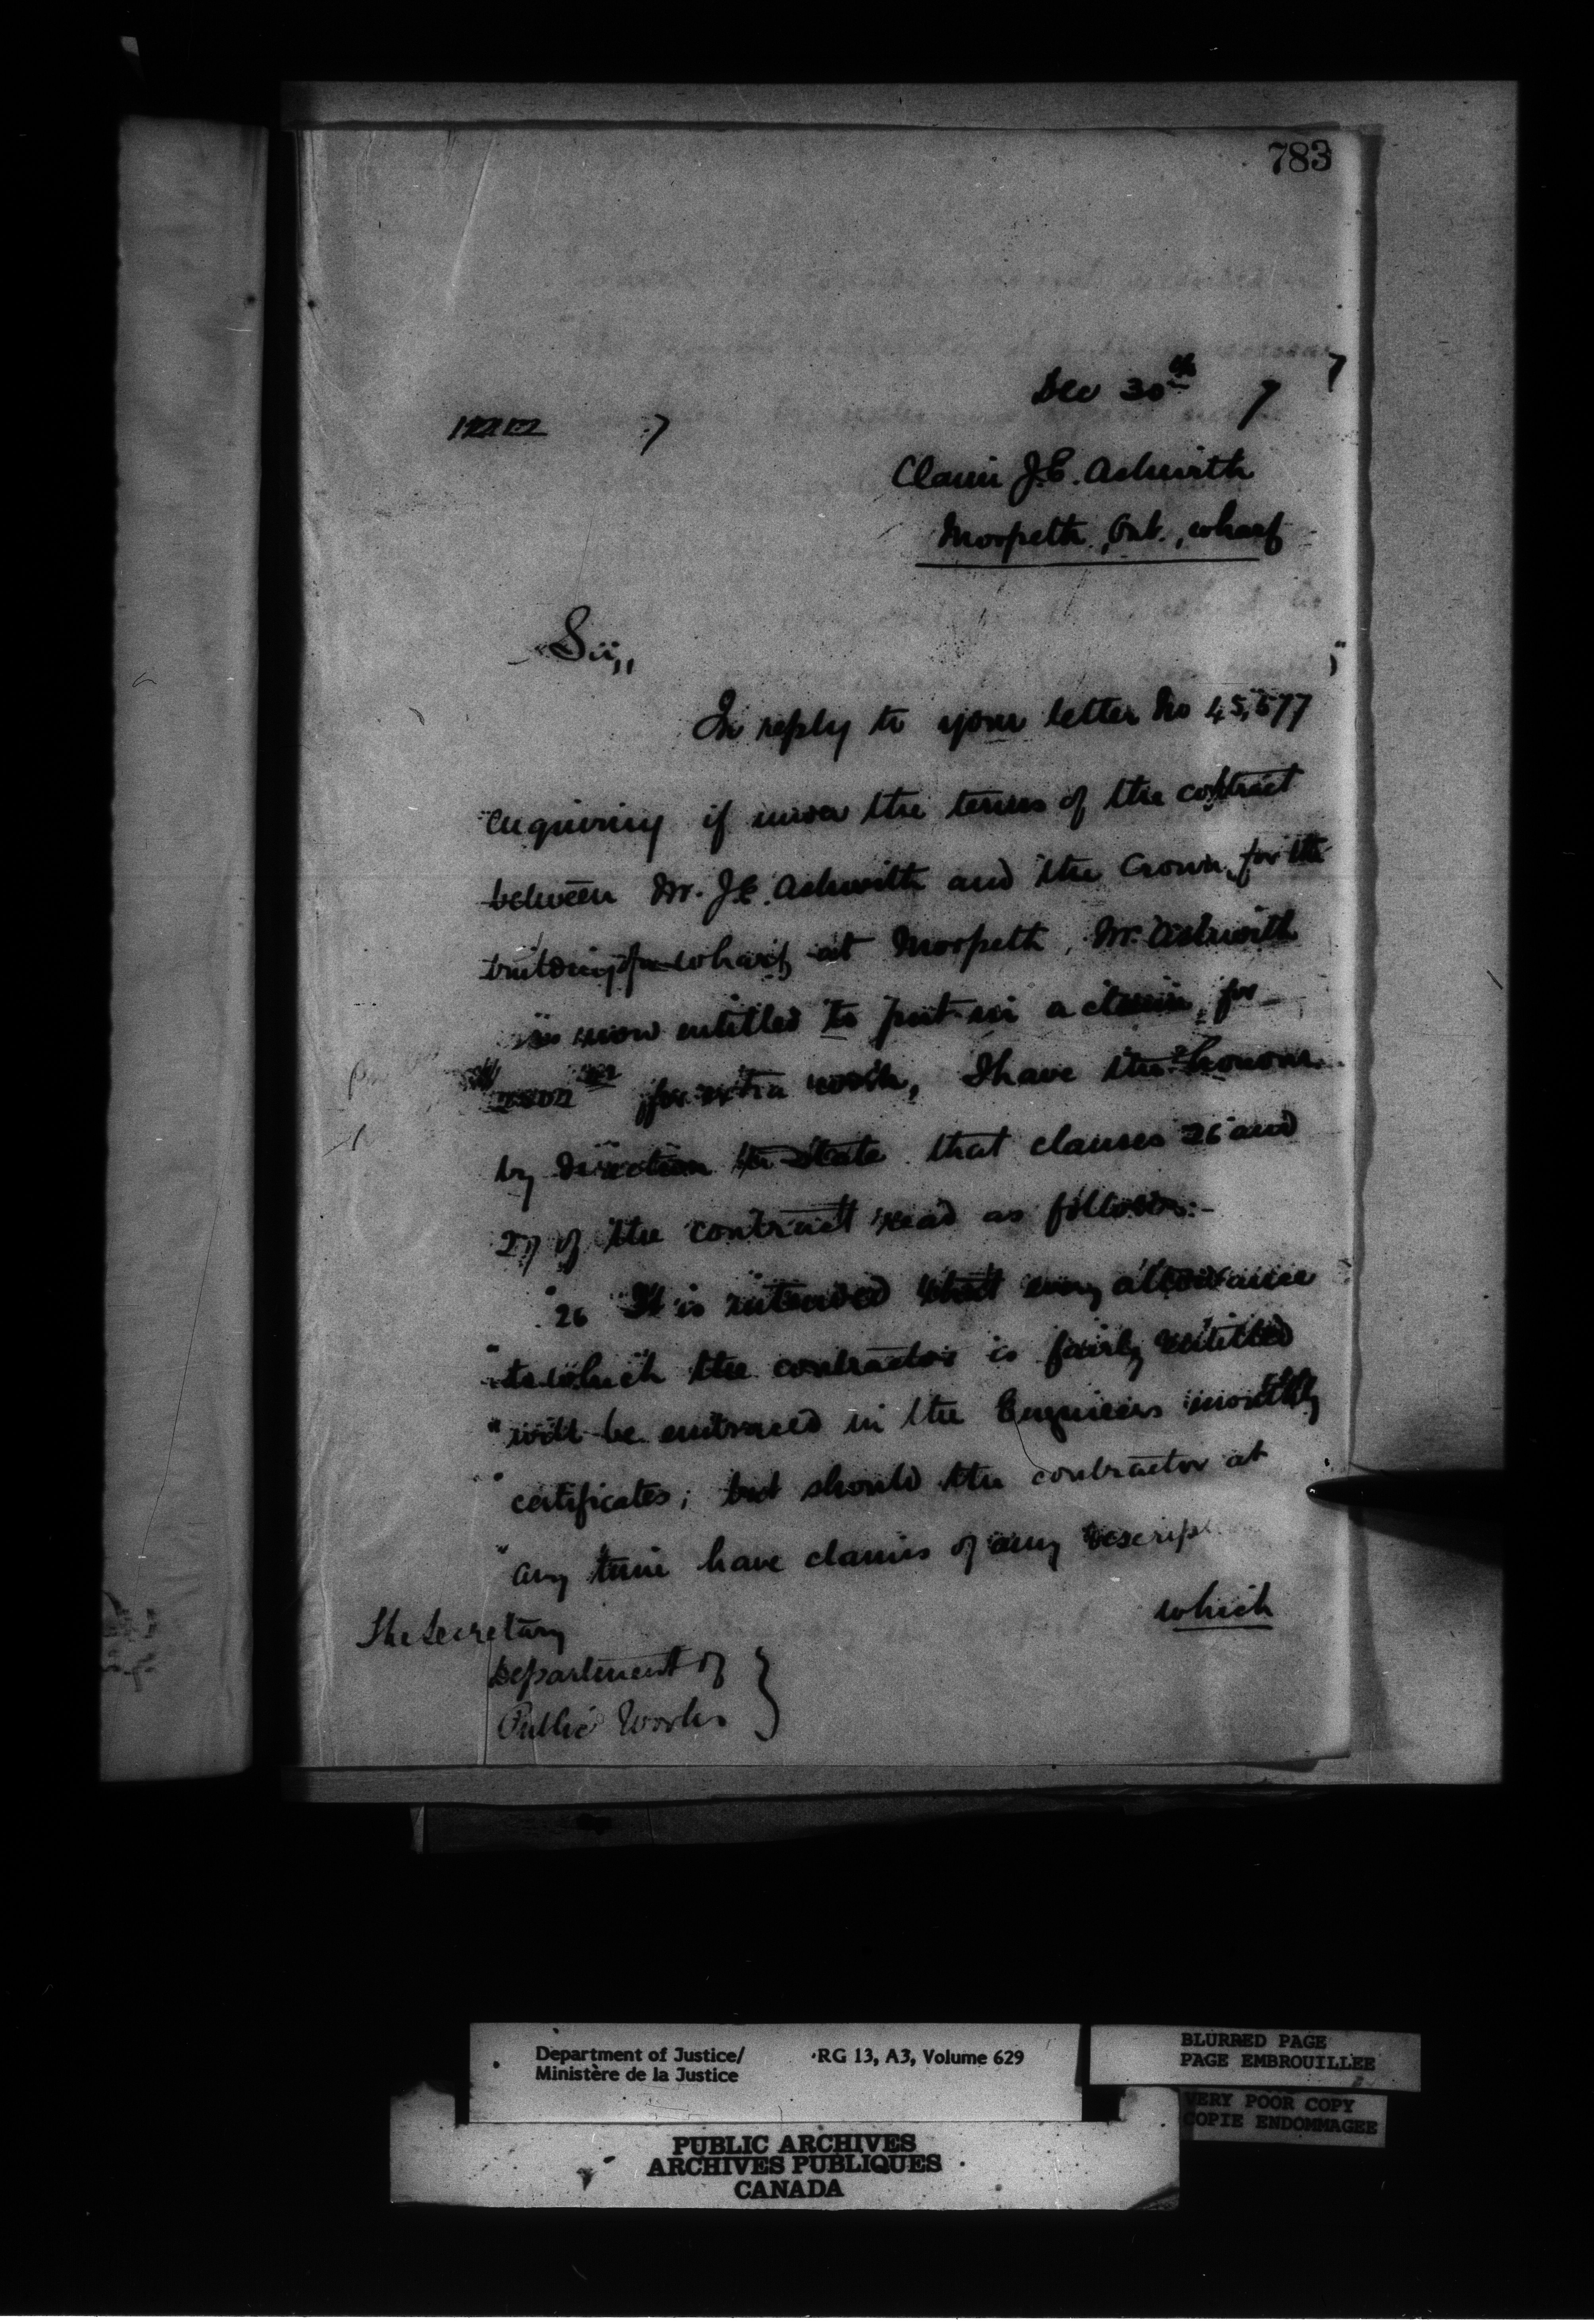 783
Dec 30th 7
7
Claim J.E. Ashwith
Morpeth, Ont., wharf
Sir,,
In reply to your letter No 45,577
enquiring if under the terms of the contract
between Mr. J.E. Ashwith and the Crown, for the
building of a wharf at Morpeth, Mr. Ashwith
is now entitled to put in a claim, for
for extra work, I have the honour
by direction to state that clauses 26 and
27 of the contract read as follows:-
"26 It is intended that every allowance
"to which the contractor is fairly entitled
"will be embraced in the Engineers monthly
"certificates; but should the contractor at
"any time have claims of any descrip
which
The Secretary
Department of
Public Works
Department of Justice/ RG 13, A3, Volume 629
Ministère de la Justice
BLURRED PAGE
PAGE EMBROUILLEE
VERY POOR COPY
COPIE ENDOMMAGEE
PUBLIC ARCHIVES
ARCHIVES PUBLIQUES
CANADA